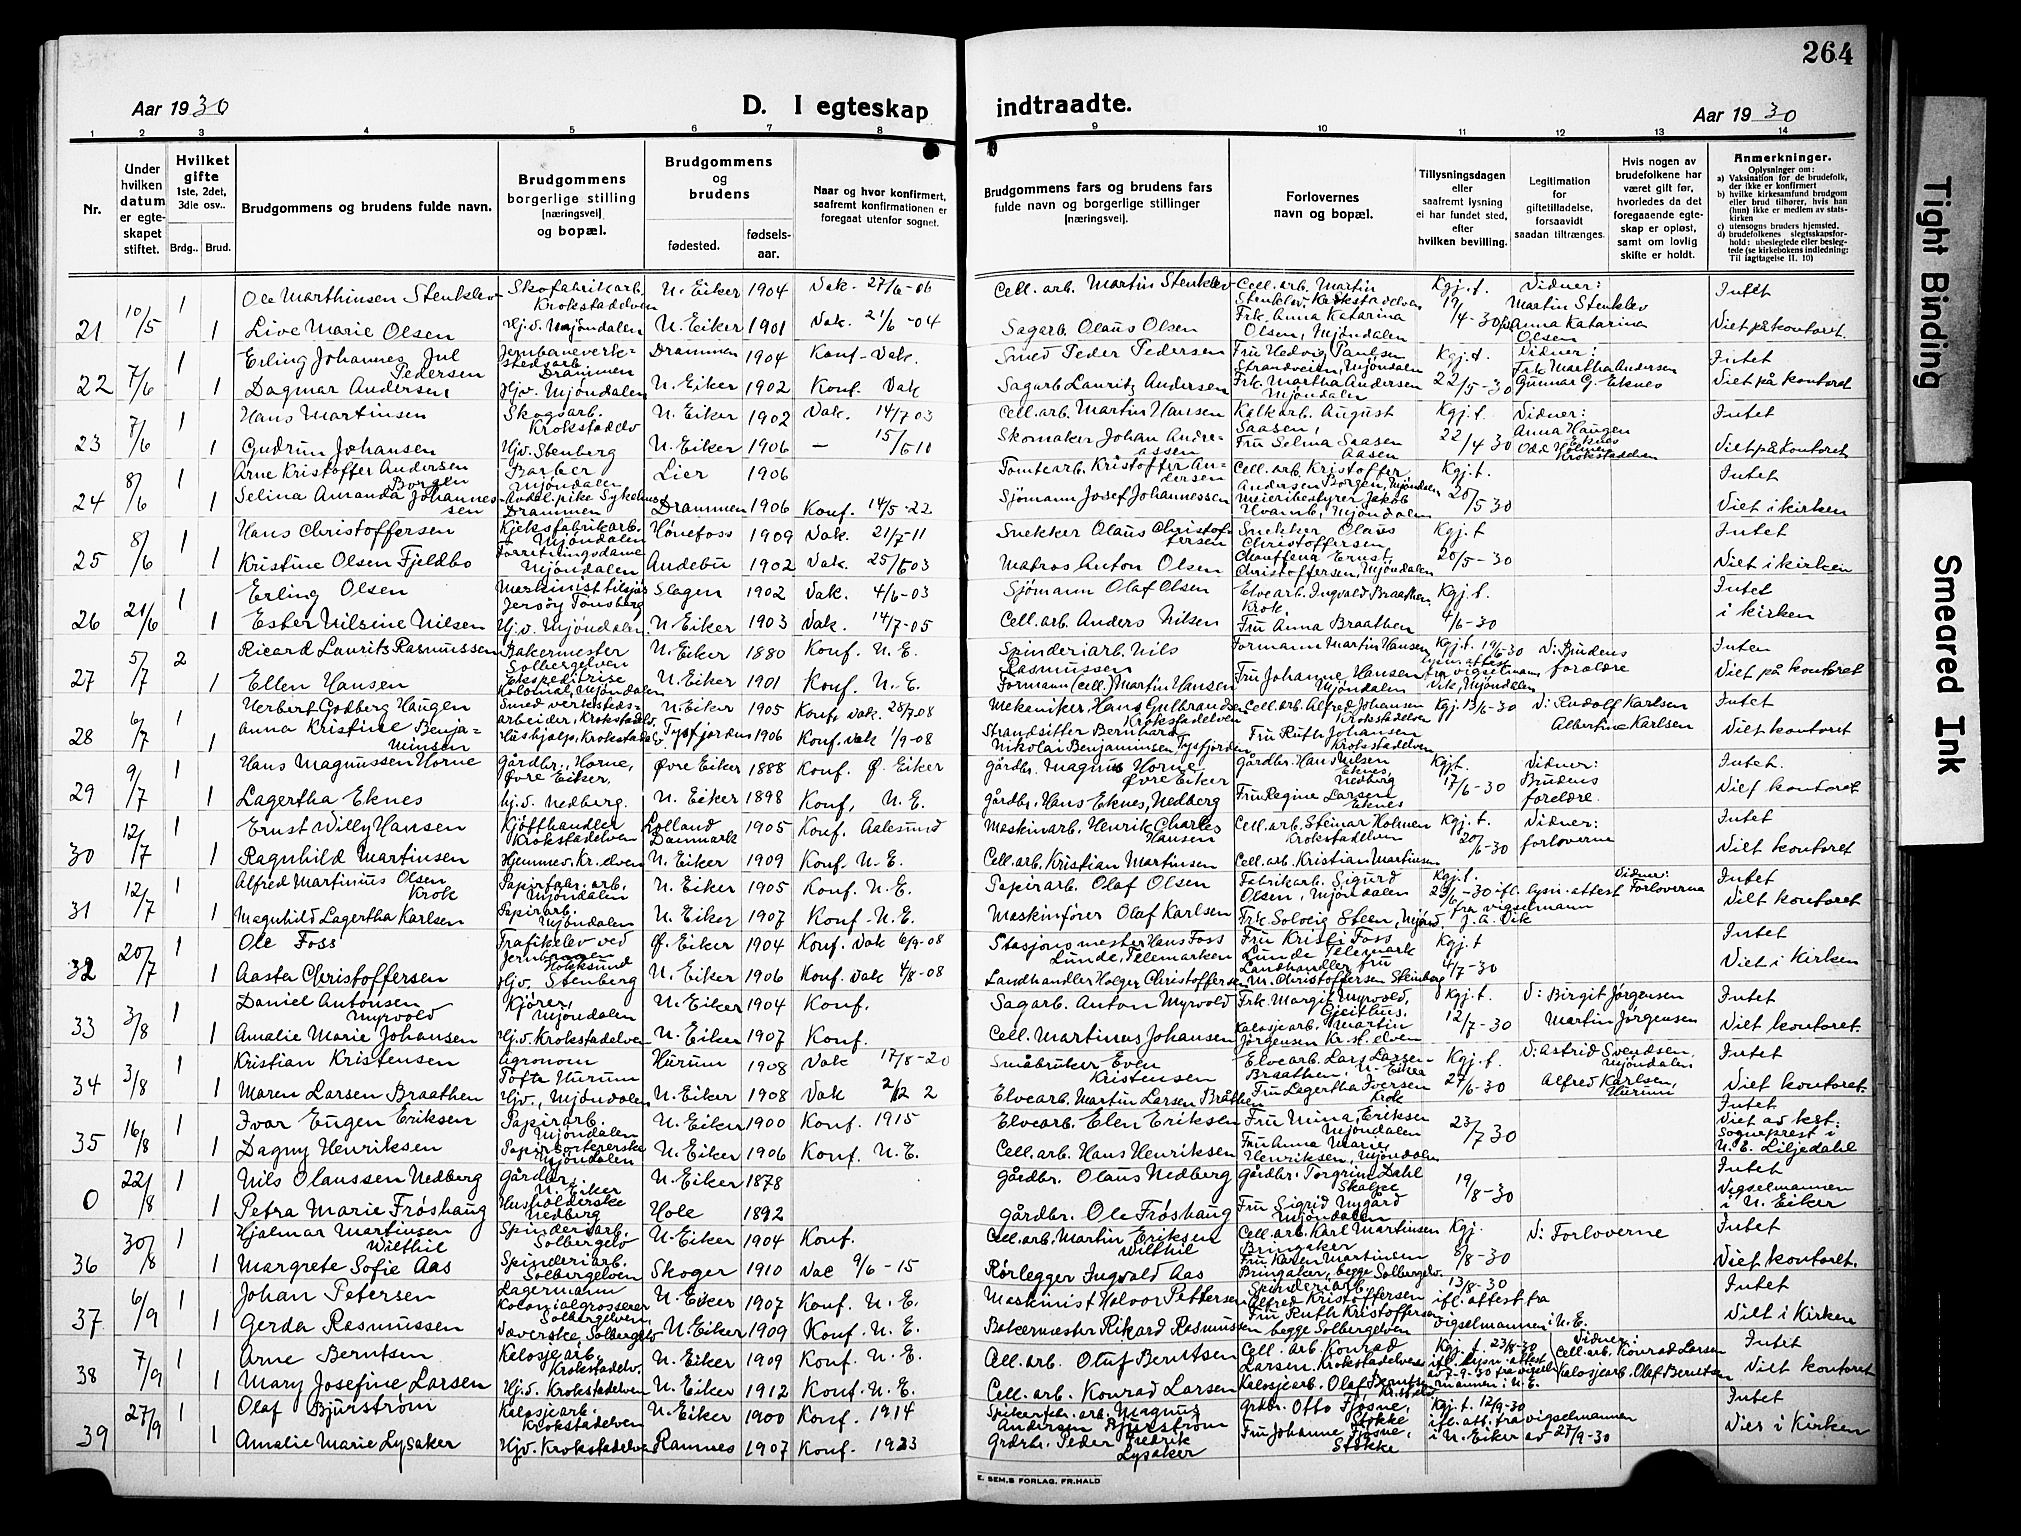 264
Aar 1930
D. I egteskap indtraadte.
Aar 1930
1 2 3 4 5 6 7 8 9 10 11 12 13 14
Nr.
Under hvilken datum er egteskapet stiftet.
Hvilket gifte
1ste, 2det, 3die osv..
Brdg.. Brud.
Brudgommens og brudens fulde navn.
Brudgommens borgerlige stilling (næringsvei) og bopæl.
Brudgommens og brudens
fødested.
fødselsaar.
Naar og hvor konfirmert, saafremt konfirmationen er foregaat utenfor sognet.
Brudgommens fars og brudens fars fulde navn og borgerlige stillinger (næringsvei).
Forlovernes navn og bopæl.
Tillysningsdagen eller saafremt lysning ei har fundet sted, efter hvilken bevilling.
Legitimation for giftetilladelse, forsaavidt saadan tiltrænges.
Hvis nogen av brudefolkene har været gift før, hvorledes da det foregaaende egteskap er opløst, samt om lovlig skifte er holdt.
Anmerkninger.
Oplysninger om:
a) Vaksination for de brudefolk, der ikke er konfirmert
b) hvilke kirkesamfund brudgom eller brud tilhører, hvis han (hun) ikke er medlem av statskirken
c) utensogns bruders hjemsted.
d) brudefolkenes slegtsskapsforhold: ubeslegtede eller beslegtede (se kirkebokens indledning: Til iagttagelse II. 10)
21 10/5 1 Ole Marthinsen Stenklev Skofabrikarb. Krokstadelven N. Eiker 1904 Vak. 27/6-06 Cell. arb. Martin Stenklev Cell. arb. Martin Stenklev, Krokstadelven Kgj. f. 19/4-30 Vidner: Martin Stenklev Intet
1 Live Marie Olsen Hj.v. Mjøndalen N. Eiker 1901 Vak. 21/6-04 Sagarb. Olaus Olsen Frk. Anna Katarina Olsen, Mjøndalen Anna Katarina Olsen Viet på kontoret.
22 7/6 1 Erling Johannes Jul Pedersen Jernbaneverkstedsarb. Drammen Drammen 1904 Konf-Vak. Smed Peder Pedersen Fru Hedvig Paulsen Strandveien, Mjøndalen Kgj. f. 22/5-30 Vidner: Frk. Martha Andersen Intet
1 Dagmar Andersen Hjv. Mjøndalen N. Eiker 1902 Konf. Vak Sagarb. Lauritz Andersen Frk. Martha Andersen Mjøndalen Gunnar G. Eknes Viet på kontoret
23 7/6 1 Hans Martinsen Skogsarb. Krokstadelv N. Eiker 1902 Vak. 14/7 03 Cell. arb. Martin Hansen Kalkarb. August Saasen, Kgj. f. 22/4 30 Vidner: Anna Haugen Eknes Intet
1 Gudrun Johansen Hjv. Stenberg N. Eiker 1906 — 15/6-10 Skomaker Johan Andreassen Fru Selma Saasen Aasen Odd Holmen Krokstadelven Viet på kontoret
24 8/6 1 Arne Kristoffer Andersen Borgen Barber Mjøndalen Lier 1906 Tomtearb. Kristoffer Andersen Cell. arb. Kristoffer Andersen Borgen, Mjøndalen Kgj. f. 20/5 30 Intet
1 Selina Amanda Johannessen Avdel.pike Sykehus Drammen Drammen 1906 Konf. 14/5-22 Sjømann Josef Johannessen Meieribestyrer Jakob Hvamb, Mjøndalen Viet i kirken
25 8/6 1 Hans Christoffersen Kjeksfabrikarb. Mjøndalen Hønefoss 1909 Vak. 21/7-11 Snekker Olaus Christoffersen Snekker Olaus Christoffersen Kgj. f 20/5-30 Intet
1 Kristine Olsen Fjeldbo Forretningsdame Mjøndalen Andebu 1902 Vak. 25/6 03 Matros Anton Olsen Chauffena Ernst Christoffersen, Mjøndalen Viet i kirken
26 21/6 1 Erling Olsen Merkinist tilsjøs Jersøy Tønsberg Slagen 1902 Vak. 4/6-03 Sjømann Olaf Olsen Elvearb. Ingvald Braathen, Krok. Kgj. f. 4/6-30 Intet
1 Ester Nilsine Nilsen Hj.v. Mjøndalen. N. Eiker 1903 Vak. 14/7-05 Cell. arb. Anders Nilsen Fru Anna Braathen i kirken
27 5/7 2 Ricard Laurits Rasmussen Bakermester Solbergelven N. Eiker 1880 Konf. N. E. Spinderiarb. Nils Rasmussen Formann Martin Hansen Kgj. f. 19/6-30 V: Brudens foreldre Inten
1 Ellen Hansen Ekspeditrise Kolonial, Mjøndalen N. Eiker 1901 Konf. N. E. Formann (cell.) Martin Hansen Fru Johanne Hansen Mjøndalen lysn.attest fra vigselmann Vik, Mjøndalen Viet på kontoret
28 6/7 1 Herbert Godberg Haugen Smed verkstedsarbeider, Krokstadelv. N. Eiker 1905 Konf. Vak. 25/7-08 Mekaniker Hans Gulbrandsen Krokstadelven Cell. arb. Alfred Johansen Krokstadelven Kgj. 13/6-30 V: Rudolf Karlsen Intet
1 Anna Kristine Benjaminsen Hushjelp, Krokstadelv Tysfjorden 1906 Konf. Vak 1/9-08 Strandsitter Bernhard Nikolai Benjaminsen, Tysfjorden Fru Ruth Johansen Krokstadelven Albertine Karlsen Viet kontoret
29 9/7 1 Hans Magnussen Horne Gårdbr. Horne, Øvre Eiker. Øvre Eiker 1888 Konf. Ø. Eiker Gårdbr. Magnus Horne Øvre Eiker Gårdbr. Hans Nilsen Eknes Nedberg Kgj.f. 17/6-30 Vidner: Brudens foreldre. Intet.
1 Lagertha Eknes Hj.v. Nedberg. N. Eiker 1898 Konf. N. E. Gårdbr. Hans Eknes, Nedberg Fru Regine Larsen Eknes Viet kontoret.
30 12/7 1 Ernst Willy Hansen Kjøtthandler Krokstadelven Lolland Danmark 1905 Konf. Aalesund Maskinarb. Henrik Charles Hansen Cell. arb. Steinar Holmen Krokstadelven Kgj. f. 20/6-30 Vidner: forloverne Intet
1 Ragnhild Martinsen Hjemmev. Kr. elven N. Eiker 1909 Konf. N. E. Cell. arb. Kristian Martinsen Cell. arb. Kristian Martinsen Viet kontoret.
31 12/7 1 Alfred Martinius Olsen Krok Papirfabr. arb. Mjøndalen N. Eiker 1905 Konf. N. E. Papirarb. Olaf Olsen Fabrikarb. Sigurd Olsen, Mjøndalen Kgj. f. 29/6-30 ifl. lysn. attest fra vigselmann J. A. Vik Vidner: Forloverne Intet
1 Magnhild Lagertha Karlsen Papirarb. Mjøndalen N. Eiker 1907 Konf. N. E. Maskinfører Olaf Karlsen Frk. Solveig Steen, Mjønd. Viet kontoret
32 20/7 1 Ole Foss Trafikelev ved Jernbanen Hokksund Ø. Eiker 1904 Konf. Vak 6/9-08 Stasjonsmester Hans Foss Lunde, Telemarken Fru Kristi Foss Lunde Telemark Kgj. f 4/7-30 Intet
1 Aasta Christoffersen Hjv. Stenberg N. Eiker 1906 Konf. Vak 4/8-08 Landhandler Holger Christoffersen Landhandler fru M. Christoffersen Steinberg Viet i kirken
33 3/8 1 Daniel Antonsen Myrvold Kjører, Mjøndalen N. Eiker 1904 Konf. Sagarb. Anton Myrvold Frk. Margit Myrvold, Geithus, Kgj. f. 12/7-30 V: Birgit Jørgensen Intet
1 Amalie Marie Johansen Hj.v. Krokstadelven N. Eiker 1907 Konf. Cell. Martinus Johansen Kalosjearb. Martin Jørgensen Kr. st. elven Martin Jørgensen Viet kontoret.
34 3/8 1 Kristian Kristensen Agronom Tofte Hurum Hurum 1908 Vak 17/8-20 Småbruker Even Kristensen Elvearb. Lars Larsen Braathen, N. Eiker Kgj. f. 27/6-30 V: Astrid Svendsen, Mjøndalen Intet
1 Maren Larsen Braathen Hjv., Mjøndalen N. Eiker 1908 Vak 2/12 2 Elvearb. Martin Larsen Bråthen Fru Lagertha Iversen Krok Alfred Karlsen, Hurum Viet kontoret.
35 16/8 1 Ivar Eugen Eriksen Papirarb. Mjøndalen N. Eiker 1900 Konf. 1915 Elvearb. Elen Eriksen Fru Mina Eriksen Mjøndalen 23/7 30 Intet
1 Dagny Henriksen Papirsortererske Mjøndalen N. Eiker 1906 Konf. N. E. Cell. arb. Hans Henriksen Fru Anna Marie Henriksen, Mjøndalen Viet av kst. Sogneprest i N. E. Liljedahl
0 22/8 1 Nils Olaussen Nedberg Gårdbr. N. Eiker N. Eiker 1878 Gårdbr. Olaus Nedberg Gårdbr. Torgrim Dahl Skalje 19/8-30 Intet
1 Petra Marie Frøshaug Husholderske Nedberg Hole 1892 Gårdbr. Ole Frøshaug Fru Sigrid Nygård Mjøndalen Vigselmannen i N. Eiker
36 30/8 1 Hjalmar Martinsen Wilthil Spinderiarb. Solbergelv N. Eiker 1904 Konf. Cell. arb. Martin Eriksen Wilthil Cell. arb. Karl Martinsen Bringaker Kgj. 8/8-30 V: Forloverne Intet
1 Margrete Sofie Aas Spinderiarb. Solbergelven Skoger 1910 Vac 9/6-15 Rørlegger Ingvald Aas Fru Karen Martinsen Bringaker, begge Solbergelv. Viet kontoret.
37 6/9 1 Johan Petersen Lagermann Kolonialgrosserer Solbergelven N. Eiker 1907 Konf. N. E. Maskinist Halvor Pettersen Spinderiarb. Alfred Kristoffersen 13/8-30 ifl. attest fra vigselmannen i N. E. Intet
1 Gerda Rasmussen Væverske, Solbergelv N. Eiker 1909 Konf. N. E. Bakermester Rikard Rasmussen Fru Ruth Kristoffersen begge Solbergelven Viet i Kirken
38 7/9 1 Arne Berntsen Kalosjearb. Krokstadelv. N. Eiker 1909 Konf. N. E. Cell. arb. Oluf Berntsen Cell. arb Konrad Larsen, Krokstadelven Kgj. f. 23/8-30 ifl. lysn. attest av 7-9-30 fra vigselmannen i N. E. Vidner: Cell. arb. Konrad Larsen Intet
1 Mary Josefine Larsen Hj.v. Krokstadelven N. Eiker 1912 Konf. N. E. Cell. arb. Konrad Larsen Kalosjearb. Olaf Berntsen Kr.st.elv. Kalosjearb. Olaf Berntsen Viet kontoret
39 27/9 1 Olaf Bjurstrøm Kalosjearb. Krokstadelven N. Eiker 1900 Konf. 1914 Spikerfabr. arb. Magnus Andersen Bjurstrøm Grdbr. Otto Fjøsne, Stokke Kgj. f. 12/9-30 ifl. att. fra vigselmannen i N. Eiker av 27/9-30 Intet
1 Amalie Marie Lysaker Hjv. Krokstadelven Ramnes 1907 Konf. 1923 Grdbr. Peder Fredrik Lysaker Fru Johanne Fjøsne, Stokke Vies i Kirken
E. SEM.S FORLAG. FR.HALD
Tight Binding
Smeared Ink